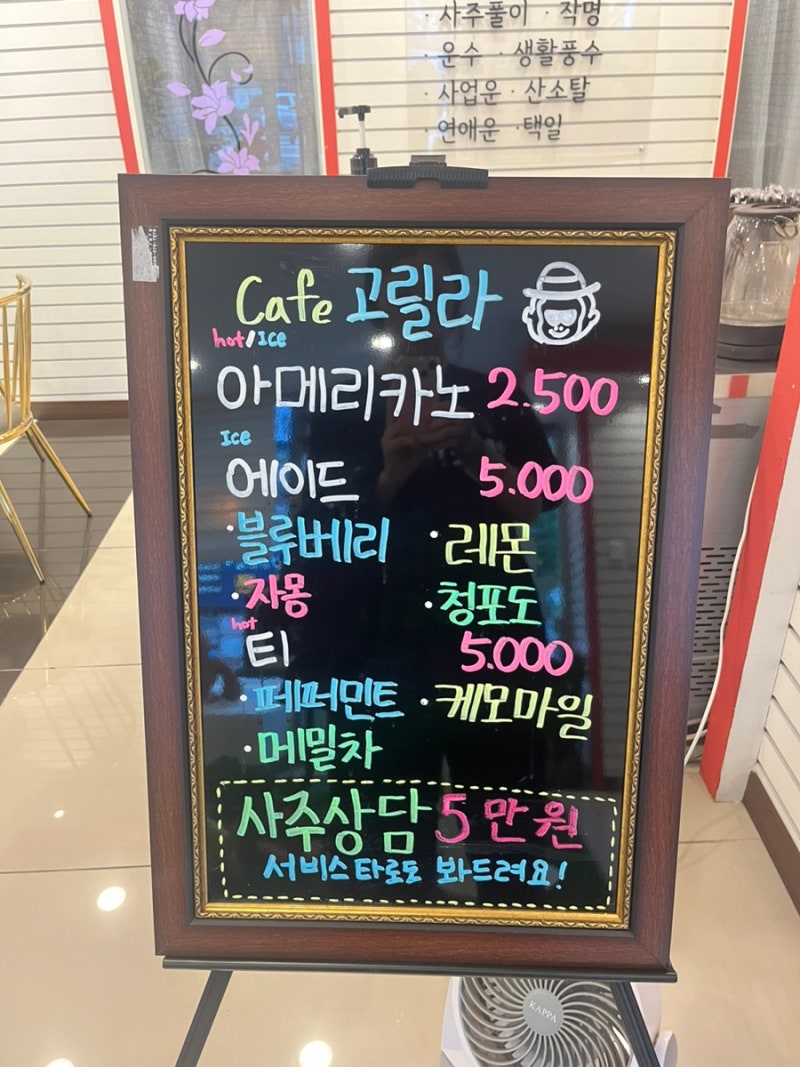 · 사주풀이 · 작명
· 운수 · 생활풍수
· 사업운 · 산소탈
· 연애운 · 택일
Cafe 고릴라
hot/Ice
아메리카노 2.500
Ice
에이드 5.000
· 블루베리 · 레몬
· 자몽 · 청포도
hot
티 5.000
· 페퍼민트 · 케모마일
· 메밀차
사주상담 5만원
서비스타로도 봐드려요!
KAPPA